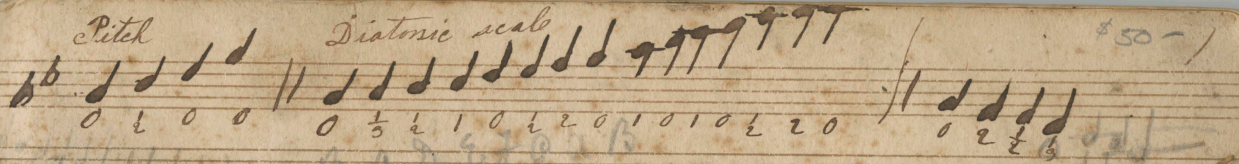 Pitch Diatonic scale $50-
0 1/2 0 0 0 1/3 1/2 1 0 1/2 2 0 1 0 1 0 1/2 2 0 0 2 1/2 1/3
B